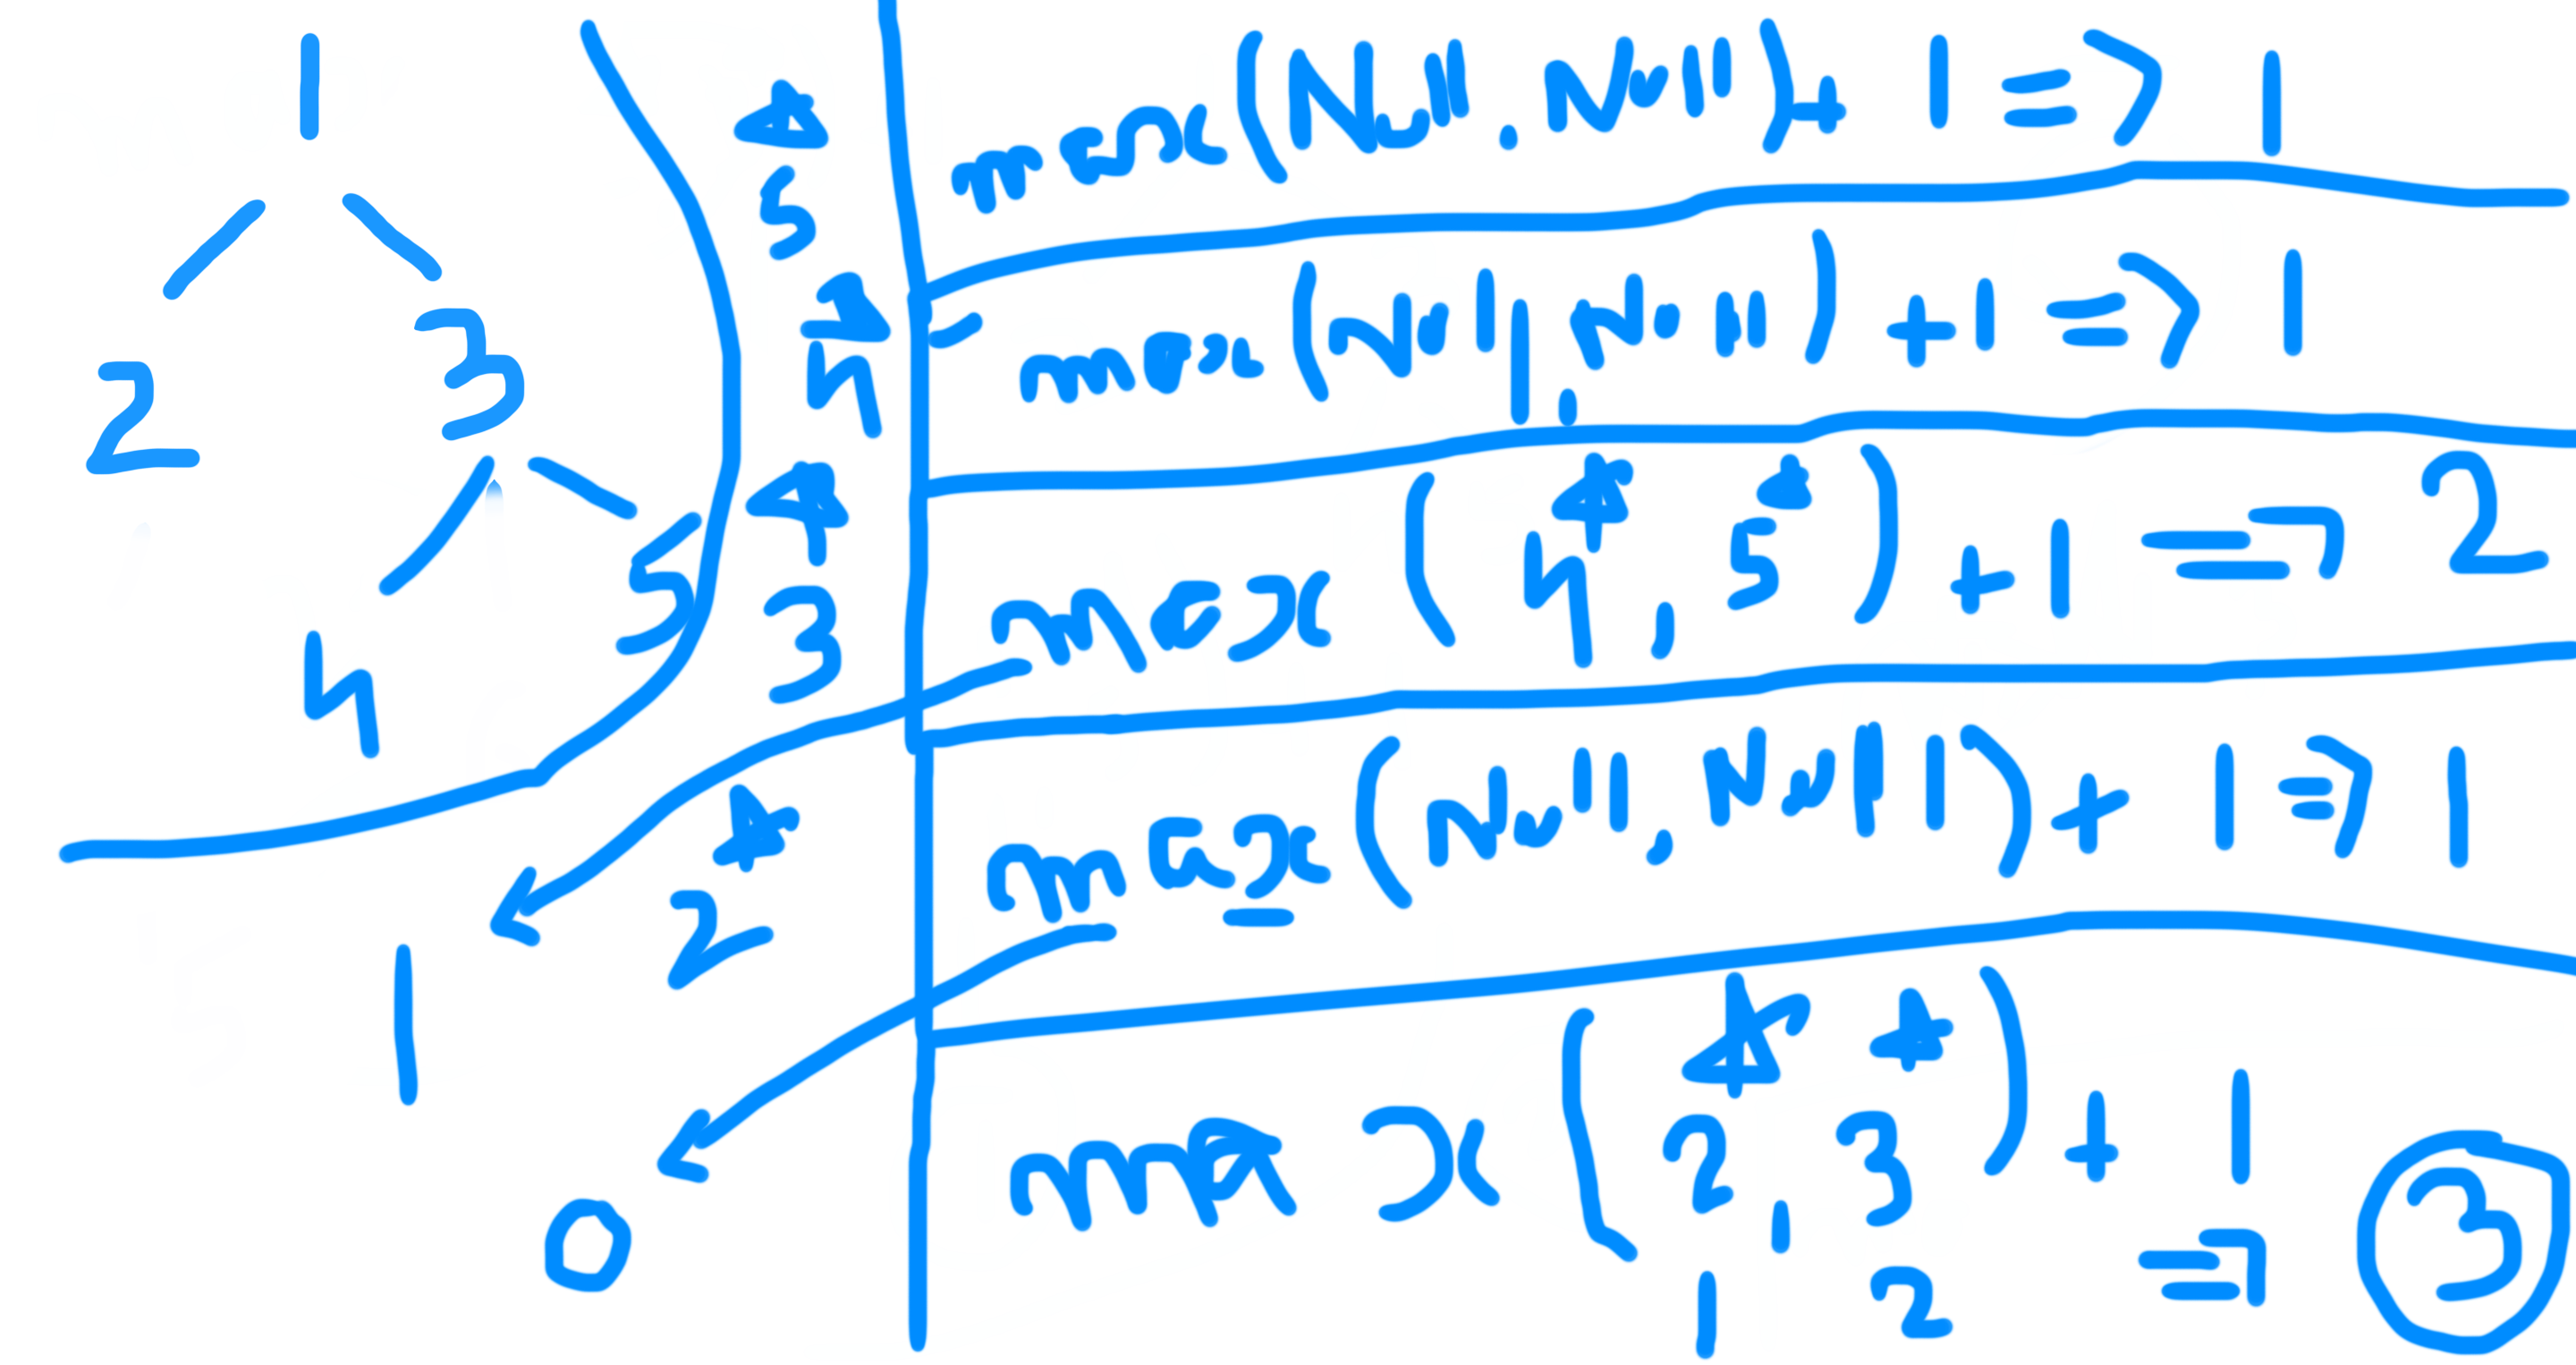 1
2 3
4 5
☆
5
max(Null, Null) + 1 => 1
☆
4
max(Null, Null) + 1 => 1
☆
3
max(4☆, 5☆) + 1 => 2
☆
2
max(Null, Null) + 1 => 1
1
max(2☆, 3☆) + 1
1 2
=> 3
0